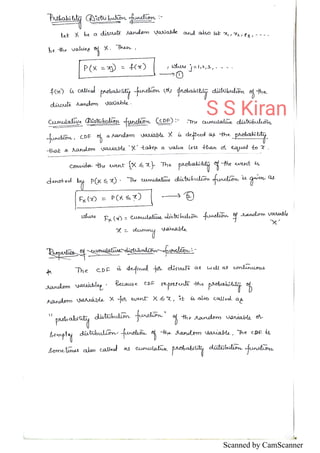 Probability Distribution function :-
Let X be a discrete random variable and also let x, x₁, x₂, ....
be the values of X. Then,
P(X = xj) = f(x) , where j = 1, 2, 3, ....
→ ①
f(x) is called probability function (or) probability distribution of the
discrete random variable.
S S Kiran
Cumulative Distribution function (CDF) :- The cumulative distribution
function, CDF of a random variable X is defined as the probability
that a random variable 'X' takes a value less than or equal to x.
Consider the event {X ≤ x}. The probability of the event is
denoted by P(X ≤ x). The cumulative distribution function is given as
Fx(x) = P(X ≤ x) → ②
where Fx(x) = cumulative distribution function of random variable
'X'
x = dummy variable
Properties of cumulative distribution function :-
The CDF is defined for discrete as well as continuous
random variables. Because CDF represents the probability of
random variable X for event X ≤ x, it is also called as
"probability distribution function" of the random variable or
Simply distribution function of the random variable, The CDF is
Sometimes also called as cumulative probability distribution function
Scanned by CamScanner